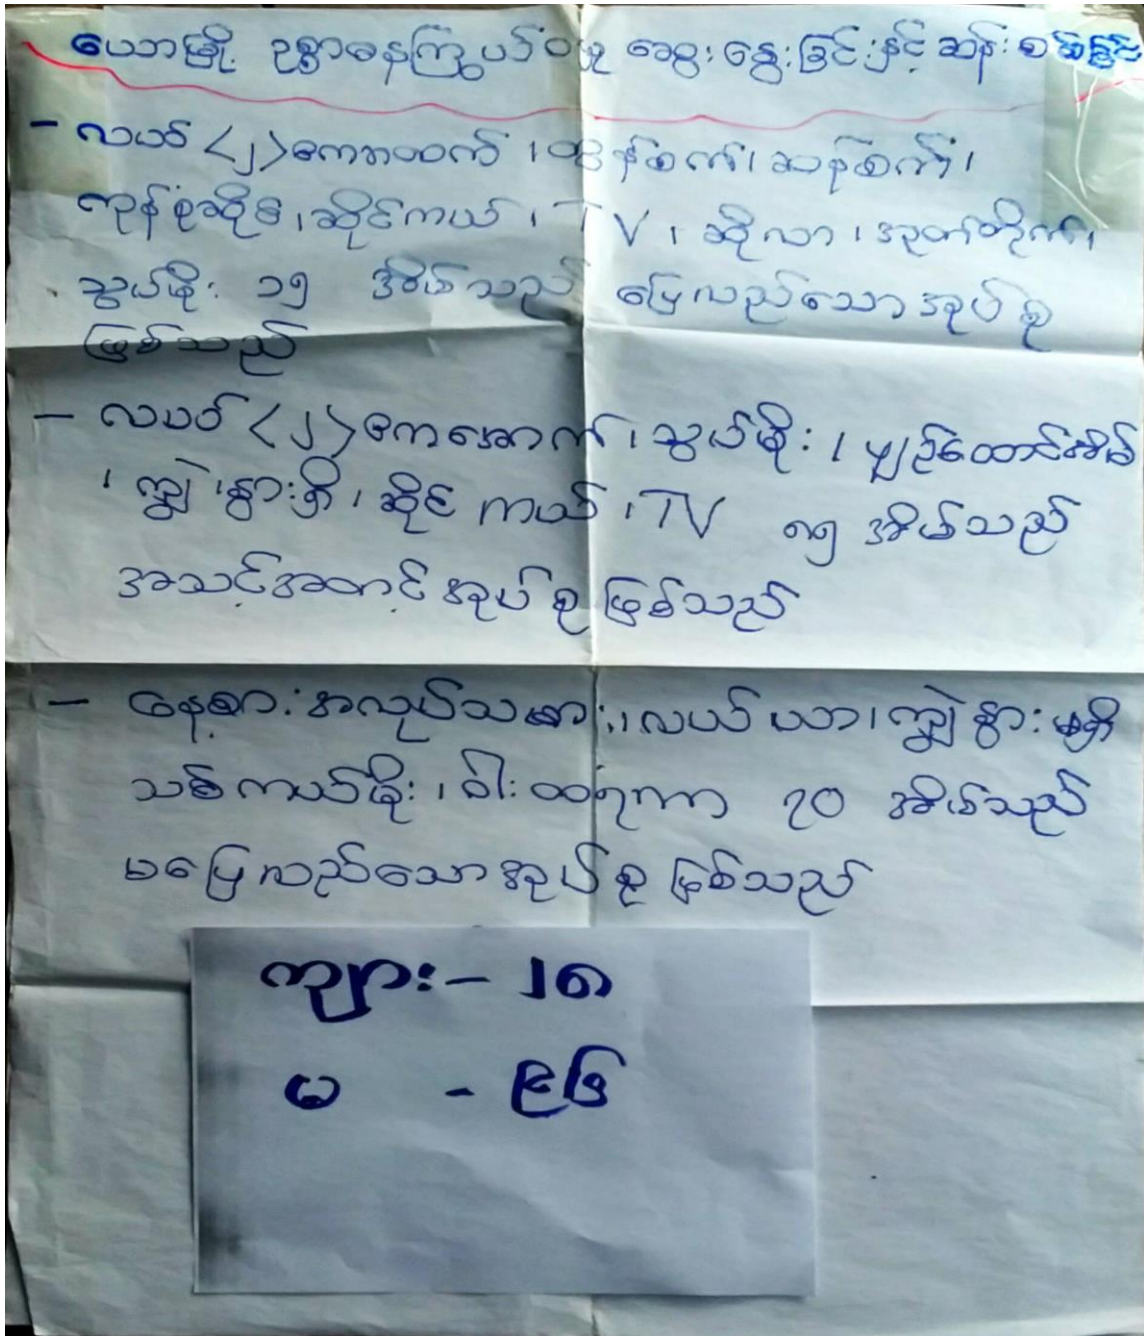 ယောမြို့ ဥစ္စာဓနကြွယ်ဝမှု ဆွေးနွေးခြင်းနှင့် ဆန်းစစ်ခြင်း
- လယ် <၂> ဧကအထက်၊ ထွန်စက်၊ ဆန်စက်၊
ကုန်စုံဆိုင်၊ ဆိုင်ကယ်၊ TV ၊ ဆိုလာ၊ အုတ်တိုက်၊
သွပ်မိုး ၁၅ အိမ်သည် ပြေလည်သော အုပ်စု
ဖြစ်သည်
- လယ် <၂> ဧကအောက်၊ သွပ်မိုး ၊ ပျဉ်ထောင်အိမ်
၊ ကျွဲ၊ နွားရှိ၊ ဆိုင်ကယ်၊ TV ၈၅ အိမ်သည်
အသင့်အတင့် အုပ်စု ဖြစ်သည်
- နေ့စား အလုပ်သမား၊ လယ်ယာ၊ ကျွဲနွား မရှိ
သက်ကယ်မိုး၊ ဝါးထရံကာ ၇၀ အိမ်သည်
မပြေလည်သော အုပ်စု ဖြစ်သည်
ကျား - ၂၈
မ -